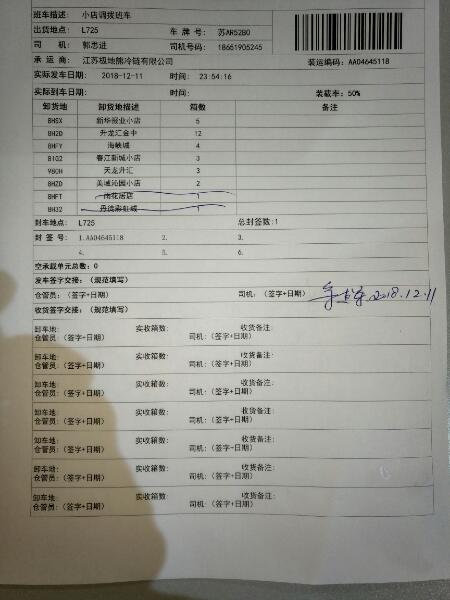 班车描述: 小店调拨班车
出货地点: L725 车牌号: 苏AR52B0
司机: 郭忠进 司机号码: 18651905245
承运商: 江苏极地熊冷链有限公司 装运编码: AA04645118
实际发车日期: 2018-12-11 时间: 23:54:16
实际到车日期: 时间: 装载率: 50%
卸货地 卸货地描述 箱数 备注
8HSX 新华报业小店 5
8H2D 升龙汇金中 12
8HFY 海峡城 4
81G2 春江新城小店 3
980H 天龙升汇 3
8HZD 美域沁园小店 2
8HFT 雨花居店 1
8H32 丹德彩虹城 1
封车地点: L725 总封签数:1
封签号: 1.AA04645118 2. 3.
4. 5. 6.
空承载单元总数: 0
发车签字交接: (规范填写)
仓管员: (签字+日期) 司机: (签字+日期) 2018.12.11
收货签字交接: (规范填写)
卸车地: 实收箱数: 收货备注:
仓管员: (签字+日期) 司机: (签字+日期)
卸车地: 实收箱数: 收货备注:
仓管员: (签字+日期) 司机: (签字+日期)
卸车地: 实收箱数: 收货备注:
仓管员: (签字+日期) 司机: (签字+日期)
卸车地: 实收箱数: 收货备注:
仓管员: (签字+日期) 司机: (签字+日期)
卸车地: 实收箱数: 收货备注:
仓管员: (签字+日期) 司机: (签字+日期)
卸车地: 实收箱数: 收货备注:
仓管员: (签字+日期) 司机: (签字+日期)
卸车地: 实收箱数: 收货备注:
仓管员: (签字+日期) 司机: (签字+日期)